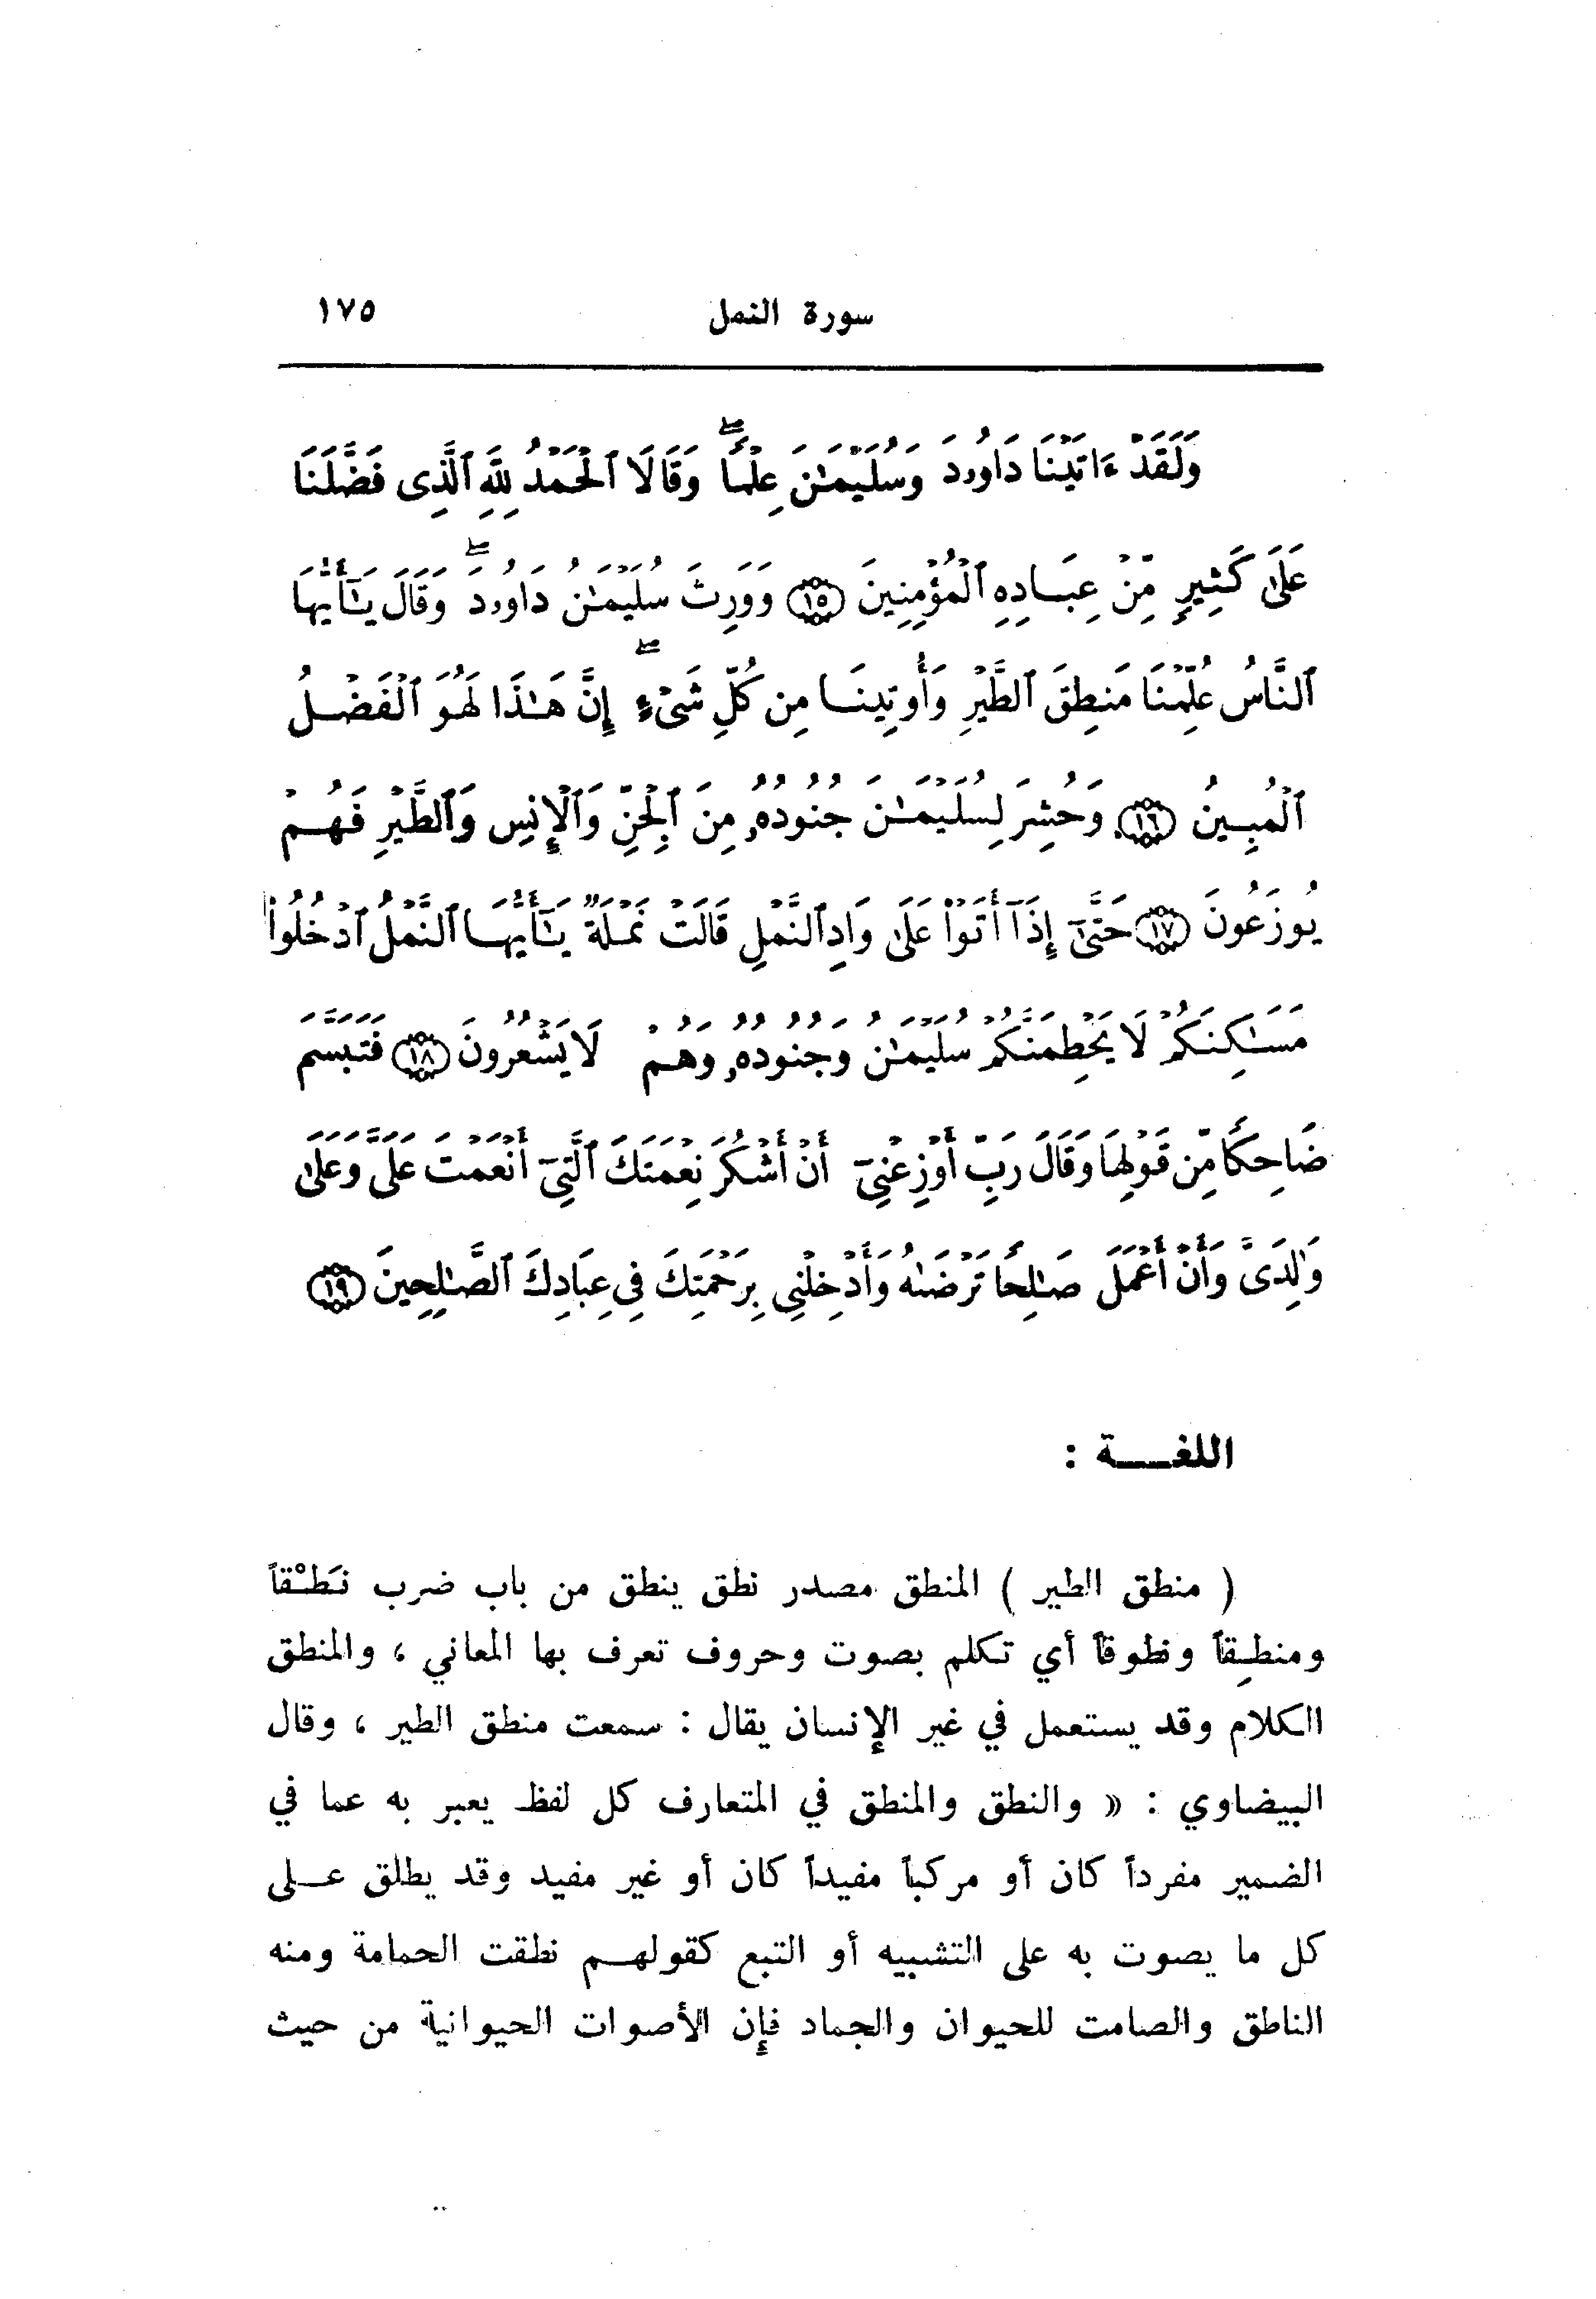 سورة النمل ١٧٥
وَلَقَدْ ءَاتَيْنَا دَاوُۥدَ وَسُلَيْمَـٰنَ عِلْمًا ۖ وَقَالَا ٱلْحَمْدُ لِلَّهِ ٱلَّذِى فَضَّلَنَا
عَلَىٰ كَثِيرٍ مِّنْ عِبَـادِهِ ٱلْمُؤْمِنِينَ ﴿١٥﴾ وَوَرِثَ سُلَيْمَـٰنُ دَاوُۥدَ ۖ وَقَالَ يَـٰٓأَيُّهَا
ٱلنَّاسُ عُلِّمْنَا مَنطِقَ ٱلطَّيْرِ وَأُوتِينَـا مِن كُلِّ شَىْءٍ ۖ إِنَّ هَـٰذَا لَهُوَ ٱلْفَضْـلُ
ٱلْمُبِـينُ ﴿١٦﴾ وَحُشِرَ لِسُلَيْمَـٰنَ جُنُودُهُۥ مِنَ ٱلْجِنِّ وَٱلْإِنسِ وَٱلطَّيْرِ فَهُـمْ
يُوزَعُونَ ﴿١٧﴾ حَتَّىٰٓ إِذَآ أَتَوْا۟ عَلَىٰ وَادِ ٱلنَّمْلِ قَالَتْ نَمْـلَةٌ يَـٰٓأَيُّهَـا ٱلنَّمْلُ ٱدْخُلُوا۟
مَسَـٰكِنَكُمْ لَا يَحْطِمَنَّكُمْ سُلَيْمَـٰنُ وَجُنُودُهُۥ وَهُـمْ لَا يَشْعُرُونَ ﴿١٨﴾ فَتَبَسَّمَ
ضَاحِكًا مِّن قَوْلِهَا وَقَالَ رَبِّ أَوْزِعْنِىٓ أَنْ أَشْكُرَ نِعْمَتَكَ ٱلَّتِىٓ أَنْعَمْتَ عَلَىَّ وَعَلَىٰ
وَٰلِدَىَّ وَأَنْ أَعْمَلَ صَـٰلِحًا تَرْضَىٰهُ وَأَدْخِلْنِى بِرَحْمَتِكَ فِى عِبَادِكَ ٱلصَّـٰلِحِينَ ﴿١٩﴾
اللغـــة :
( منطق الطير ) المنطق مصدر نطق ينطق من باب ضرب نَطْقاً
ومنطِقاً ونطوقاً أي تكلم بصوت وحروف تعرف بها المعاني ، والمنطق
الكلام وقد يستعمل في غير الإنسان يقال : سمعت منطق الطير ، وقال
البيضاوي : « والنطق والمنطق في المتعارف كل لفظ يعبر به عما في
الضمير مفرداً كان أو مركباً مفيداً كان أو غير مفيد وقد يطلق عـلى
كل ما يصوت به على التشبيه أو التبع كقولهـم نطقت الحمامة ومنه
الناطق والصامت للحيوان والجماد فإن الأصوات الحيوانية من حيث